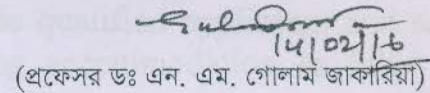 14/02/16
(প্রফেসর ডঃ এন. এম. গোলাম জাকারিয়া)